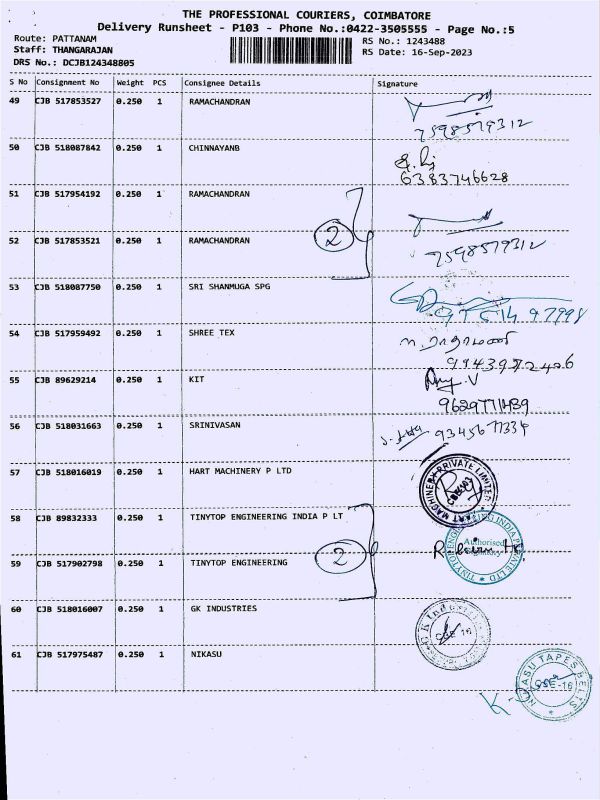 THE PROFESSIONAL COURIERS, COIMBATORE
Delivery Runsheet - P103 - Phone No.:0422-3505555 - Page No.:5
Route: PATTANAM
Staff: THANGARAJAN
DRS No.: DCJB124348805
RS No.: 1243488
RS Date: 16-Sep-2023
S No Consignment No Weight PCS Consignee Details Signature
49 CJB 517853527 0.250 1 RAMACHANDRAN
7598579312
50 CJB 518087842 0.250 1 CHINNAYANB
6383746628
51 CJB 517954192 0.250 1 RAMACHANDRAN
2
52 CJB 517853521 0.250 1 RAMACHANDRAN
7598579312
53 CJB 518087750 0.250 1 SRI SHANMUGA SPG
54 CJB 517959492 0.250 1 SHREE TEX
55 CJB 89629214 0.250 1 KIT
56 CJB 518031663 0.250 1 SRINIVASAN
57 CJB 518016019 0.250 1 HART MACHINERY P LTD
HART MACHINERY PRIVATE LIMITED
58 CJB 89832333 0.250 1 TINYTOP ENGINEERING INDIA P LT
2
TINYTOP ENGINEERING INDIA PRIVATE LTD
Authorised
59 CJB 517902798 0.250 1 TINYTOP ENGINEERING
60 CJB 518016007 0.250 1 GK INDUSTRIES
G K Industries
CBE 16
61 CJB 517975487 0.250 1 NIKASU
TAPES BELTS
CBE-16